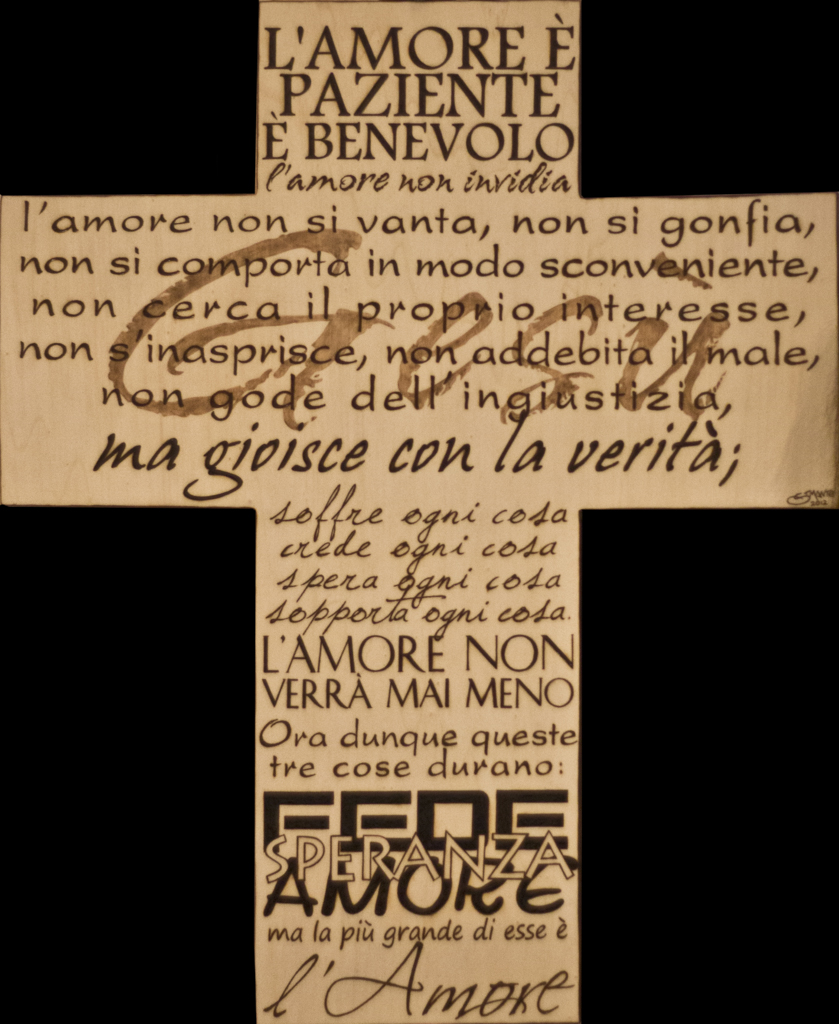 L'AMORE È
PAZIENTE
È BENEVOLO
l'amore non invidia
l'amore non si vanta, non si gonfia,
non si comporta in modo sconveniente,
non cerca il proprio interesse,
non s'inasprisce, non addebita il male,
non gode dell'ingiustizia,
Gesù
ma gioisce con la verità;
soffre ogni cosa
crede ogni cosa
spera ogni cosa
sopporta ogni cosa.
L'AMORE NON
VERRÀ MAI MENO
Ora dunque queste
tre cose durano:
FEDE
SPERANZA
AMORE
ma la più grande di esse è
l'Amore